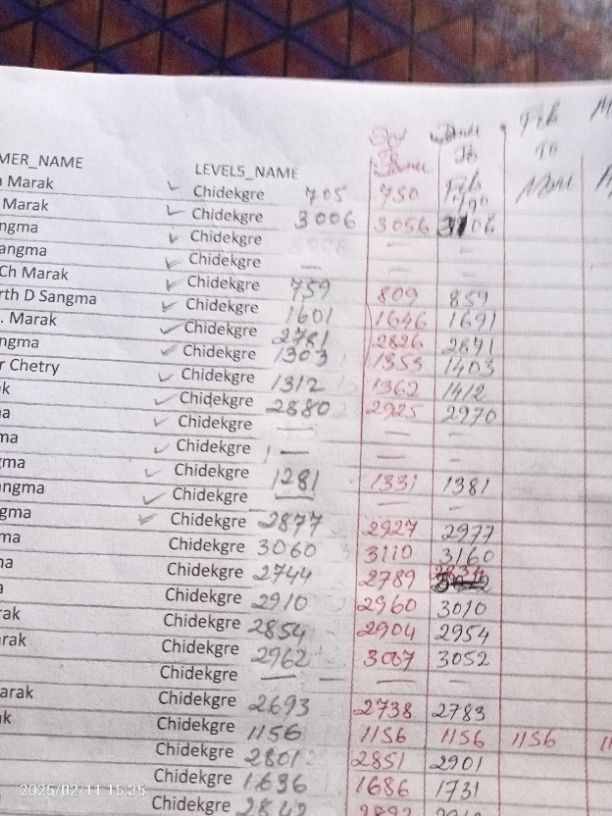 Feb
To To
Feb
MER_NAME LEVEL5_NAME
Marak Chidekgre 705 750
Marak Chidekgre 3006 3056 3106
ngma Chidekgre — —
angma Chidekgre — — —
Ch Marak Chidekgre 759 809 859
rth D Sangma Chidekgre 1601 1646 1691
. Marak Chidekgre 2781 2826 2871
ngma Chidekgre 1303 1353 1403
r Chetry Chidekgre 1312 1362 1412
k Chidekgre 2880 2925 2970
a Chidekgre — — —
ma Chidekgre — — —
gma Chidekgre 1281 1331 1381
angma Chidekgre — — —
gma Chidekgre 2877 2927 2977
ma Chidekgre 3060 3110 3160
na Chidekgre 2744 2789 2834
a Chidekgre 2910 2960 3010
rak Chidekgre 2854 2904 2954
arak Chidekgre 2962 3007 3052
Chidekgre — — —
arak Chidekgre 2693 2738 2783
k Chidekgre 1156 1156 1156 1156 11
Chidekgre 2801 2851 2901
Chidekgre 1636 1686 1731
Chidekgre 2842
2025/02/11 15:35